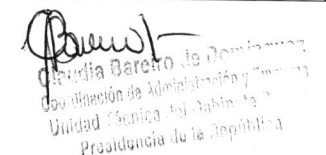 Claudia Bareiro de Domínguez
Coordinación de Administración y
Unidad Técnica del Gabinete
Presidencia de la República